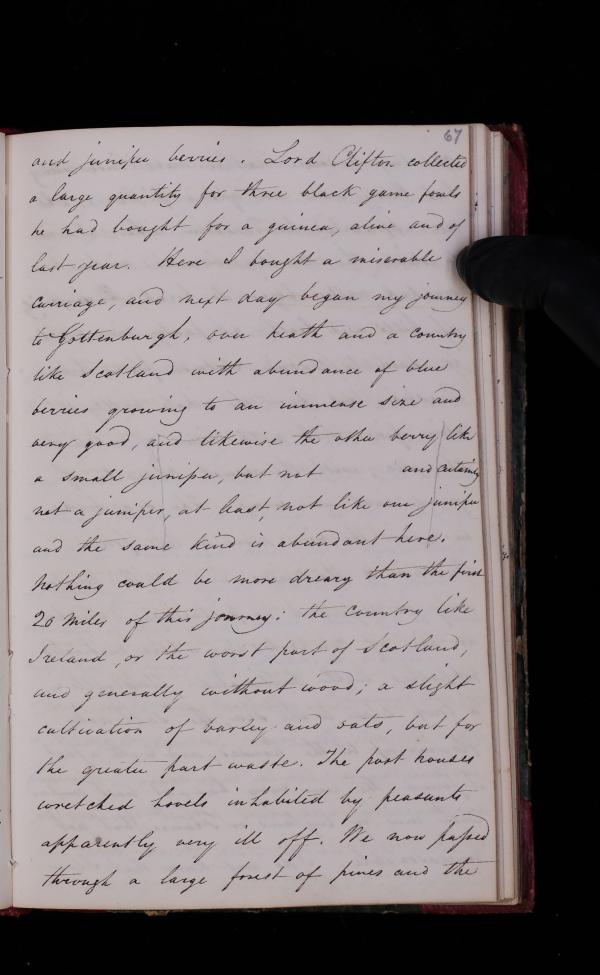 67
and juniper berries. Lord Clifton collected
a large quantity for three black game fowls
he had bought for a guinea, alive and of
last year. Here I bought a miserable
carriage, and next day began my journey
to Gottenburgh, over heath and a country
like Scotland with abundance of blue
berries growing to an immense size and
very good, and likewise the other berry like
a small juniper, but not and certainly
not a juniper, at least, not like our juniper
and the same kind is abundant here.
Nothing could be more dreary than the first
20 Miles of this journey: the country like
Ireland, or the worst part of Scotland,
and generally without wood; a slight
cultivation of barley and oats, but for
the greater part waste. The post houses
wretched hovels inhabited by peasants
apparently very ill off. We now passed
through a large forest of pines and the